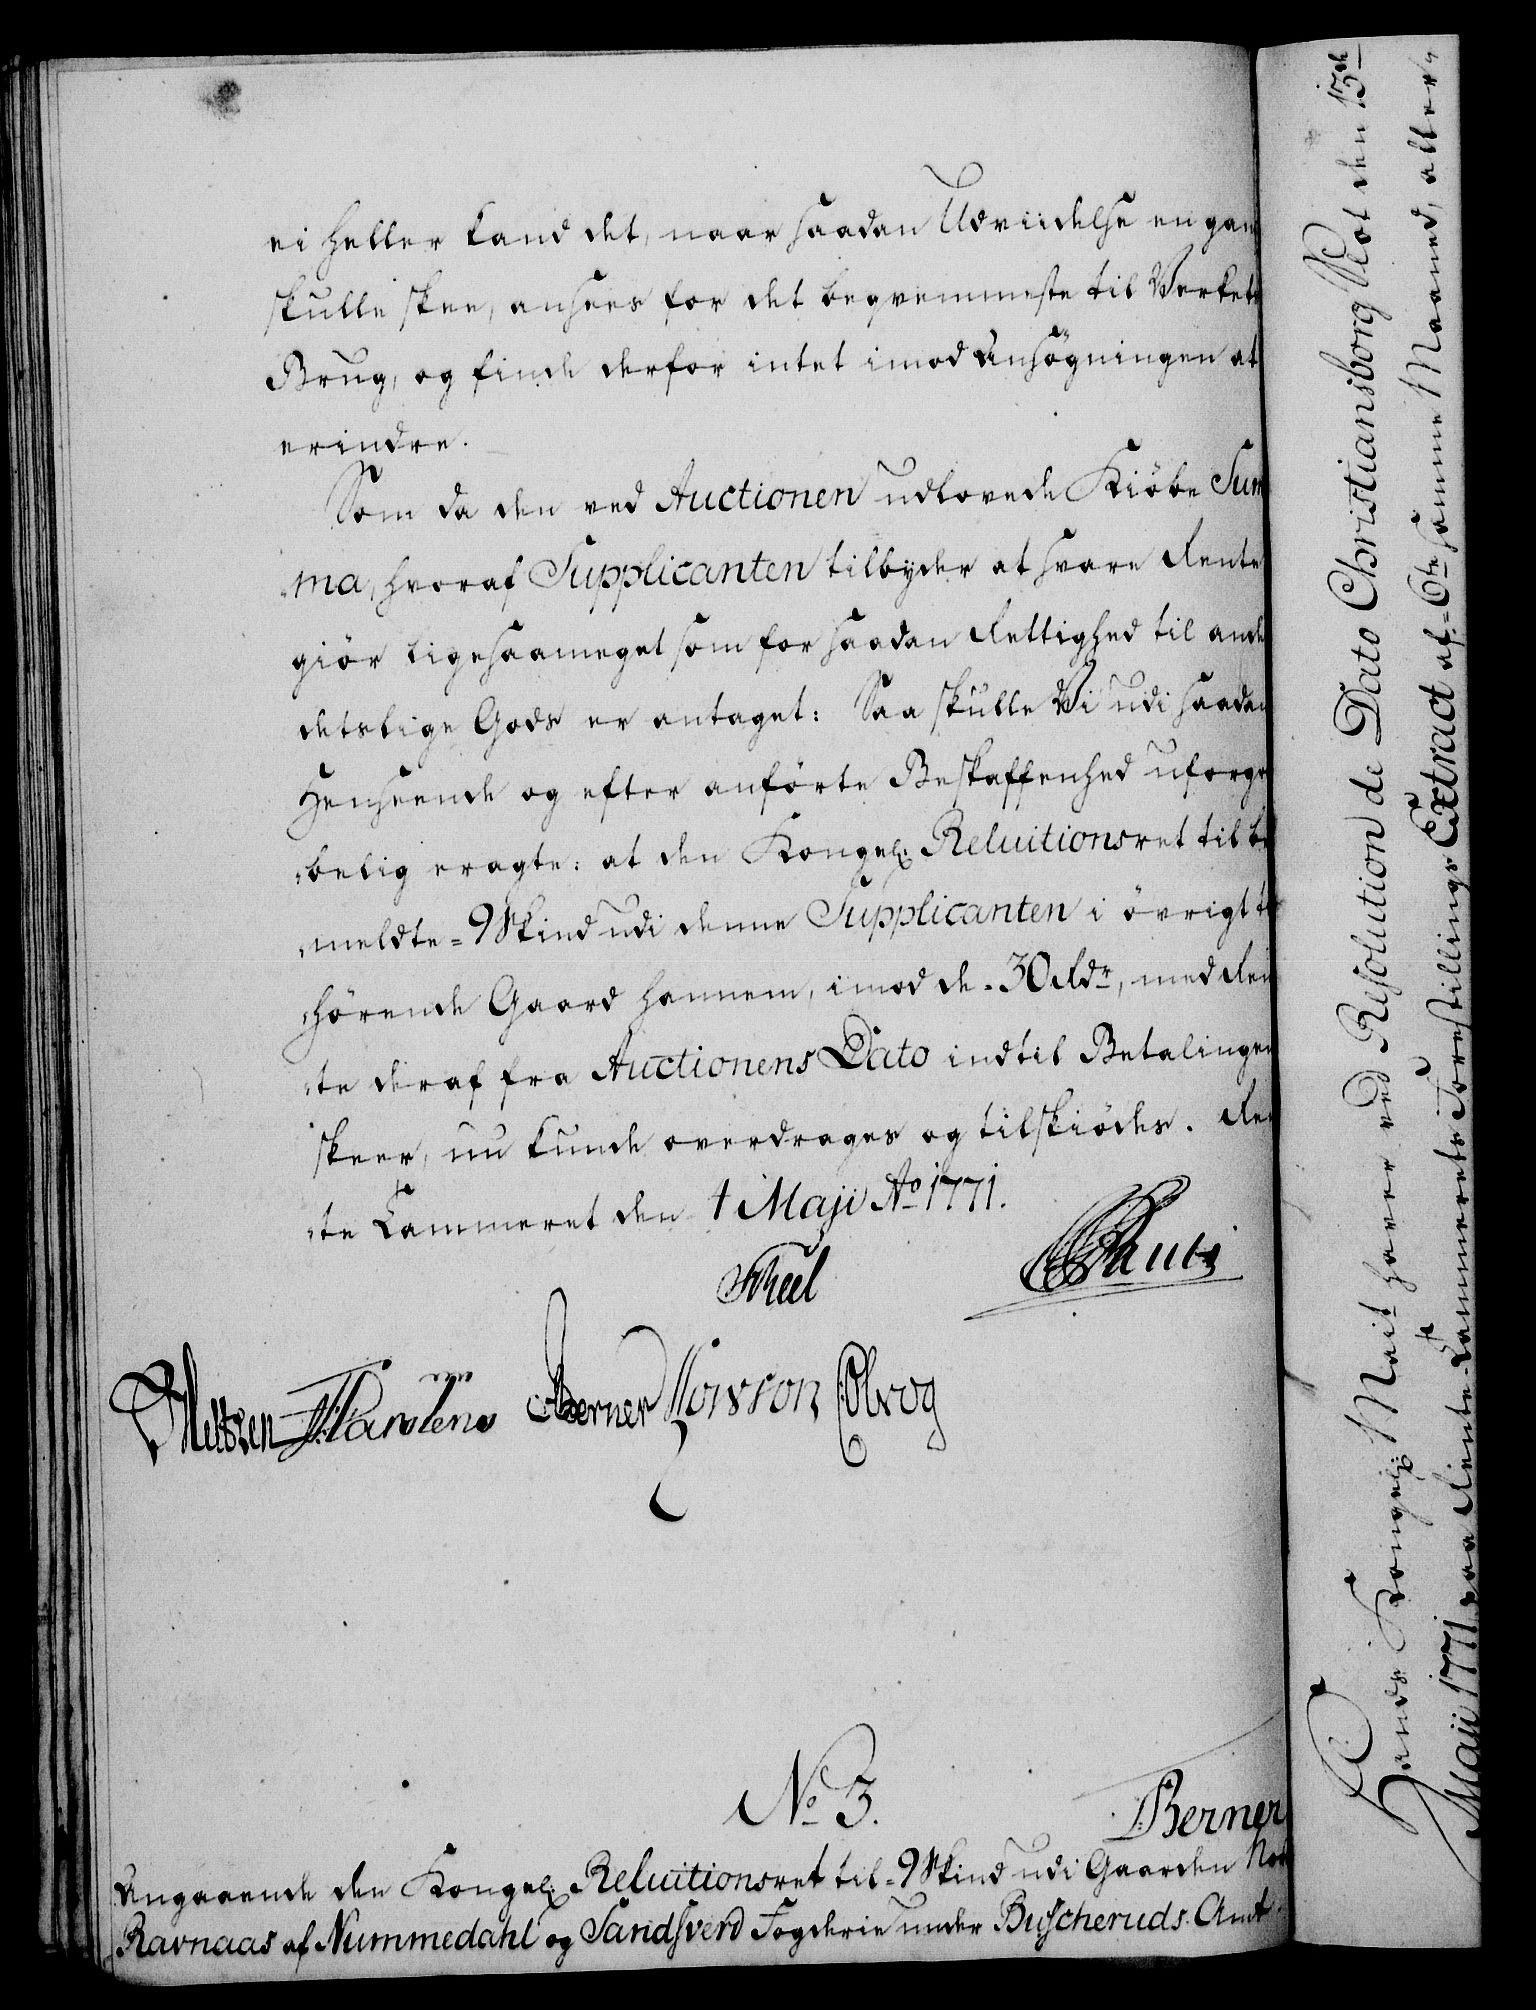 ei heller kand det, naar saadan Udviidelse en gan
skulle skee, ansees for det beqvemmeste til Verkets
Brug, og finde derfor intet imod Ansögningen at
erindre.
Som da den ved Auctionen udlovede Kiöbe Sum
ma, hvoraf Supplicanten tilbyder at svare Rente
giör ligesaameget som for saadan Rettighed til andet
detslige Gods er antaget: Saa skulle Vi udi saadan
Henseende og efter anförte Beskaffenhed uforgri
belig eragte: at den Kongel: Reluitionsret til be
meldte = 9 Skind udi denne Supplicanten i övrigt til
hörende Gaard hannem, imod de = 30 Rdr, med Ren
te deraf fra Auctionens Dato indtil Betalingen
skeer, nu kunde overdrages og tilskiödes. Ren
te Kammeret den 1 Maji Ao 1771.
Scheel
Berner
Elbrog
No 3.
Berner
Angaaende den Kongel: Reluitionsret til = 9 Skind udi Gaarden Nor
Ravnaas af Nummedahl og Sandsverd Fogderie under Buscheruds Amt.
Hands Kongel: Mait haver ved Resolution de Dato Christiansborg Slot den 15de
Maji 1771 paa Rente-Kammerets Forestillings Extract af = 6te samme Maaned, aller